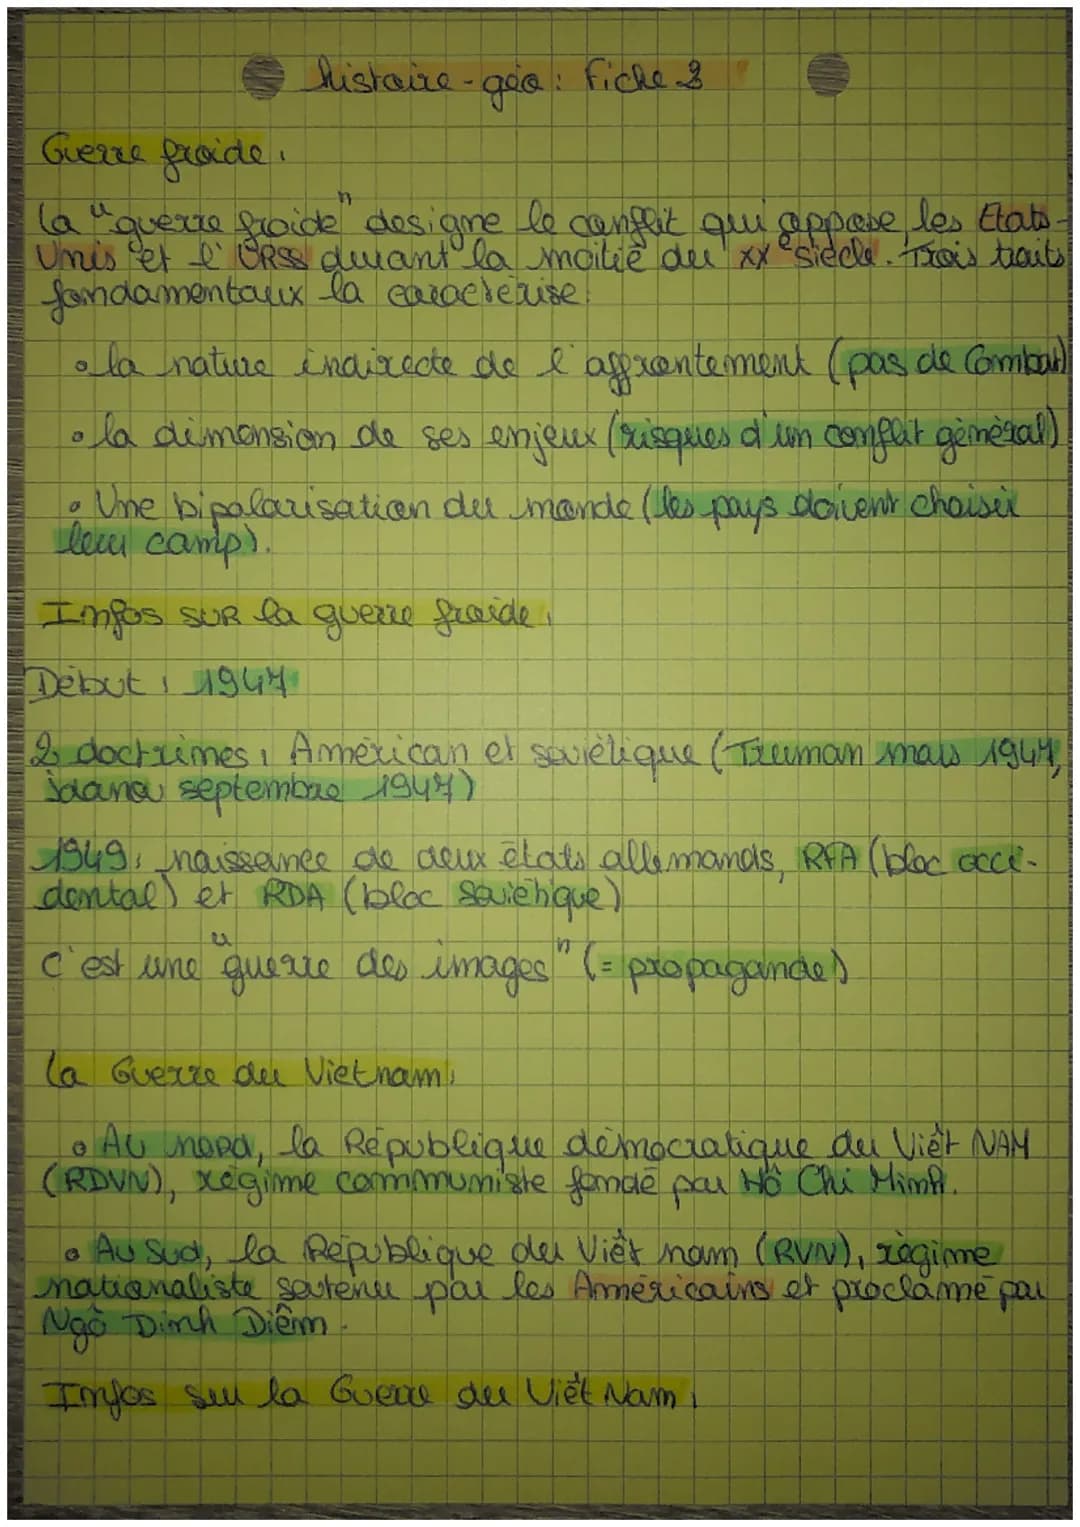 histoire-géo : Fiche 3
Guerre froide :
La "guerre froide" designe le conflit qui oppose les Etats-
Unis et l'URSS durant la moitié du XXe siècle. Trois traits
fondamentaux la caractérise :
• la nature indirecte de l'affrontement (pas de combat)
• la dimension de ses enjeux (risques d'un conflit général)
• Une bipolarisation du monde (les pays doivent choisir
leur camp).
Infos sur la guerre froide :
Début : 1947
2 doctrines : Américan et soviétique (Truman mars 1947,
Jdanov septembre 1947)
1949 : naissance de deux états allemands, RFA (bloc occi-
dental) et RDA (bloc soviétique)
C'est une "guerre des images" (= propagande)
La Guerre du Vietnam :
• Au nord, la République démocratique du Viêt NAM
(RDVN), régime communiste fondé par Hô Chi Minh.
• Au Sud, la République du Viêt nam (RVN), régime
nationaliste soutenu par les Américains et proclamé par
Ngô Dinh Diêm.
Infos sur la Guerre du Viêt Nam :